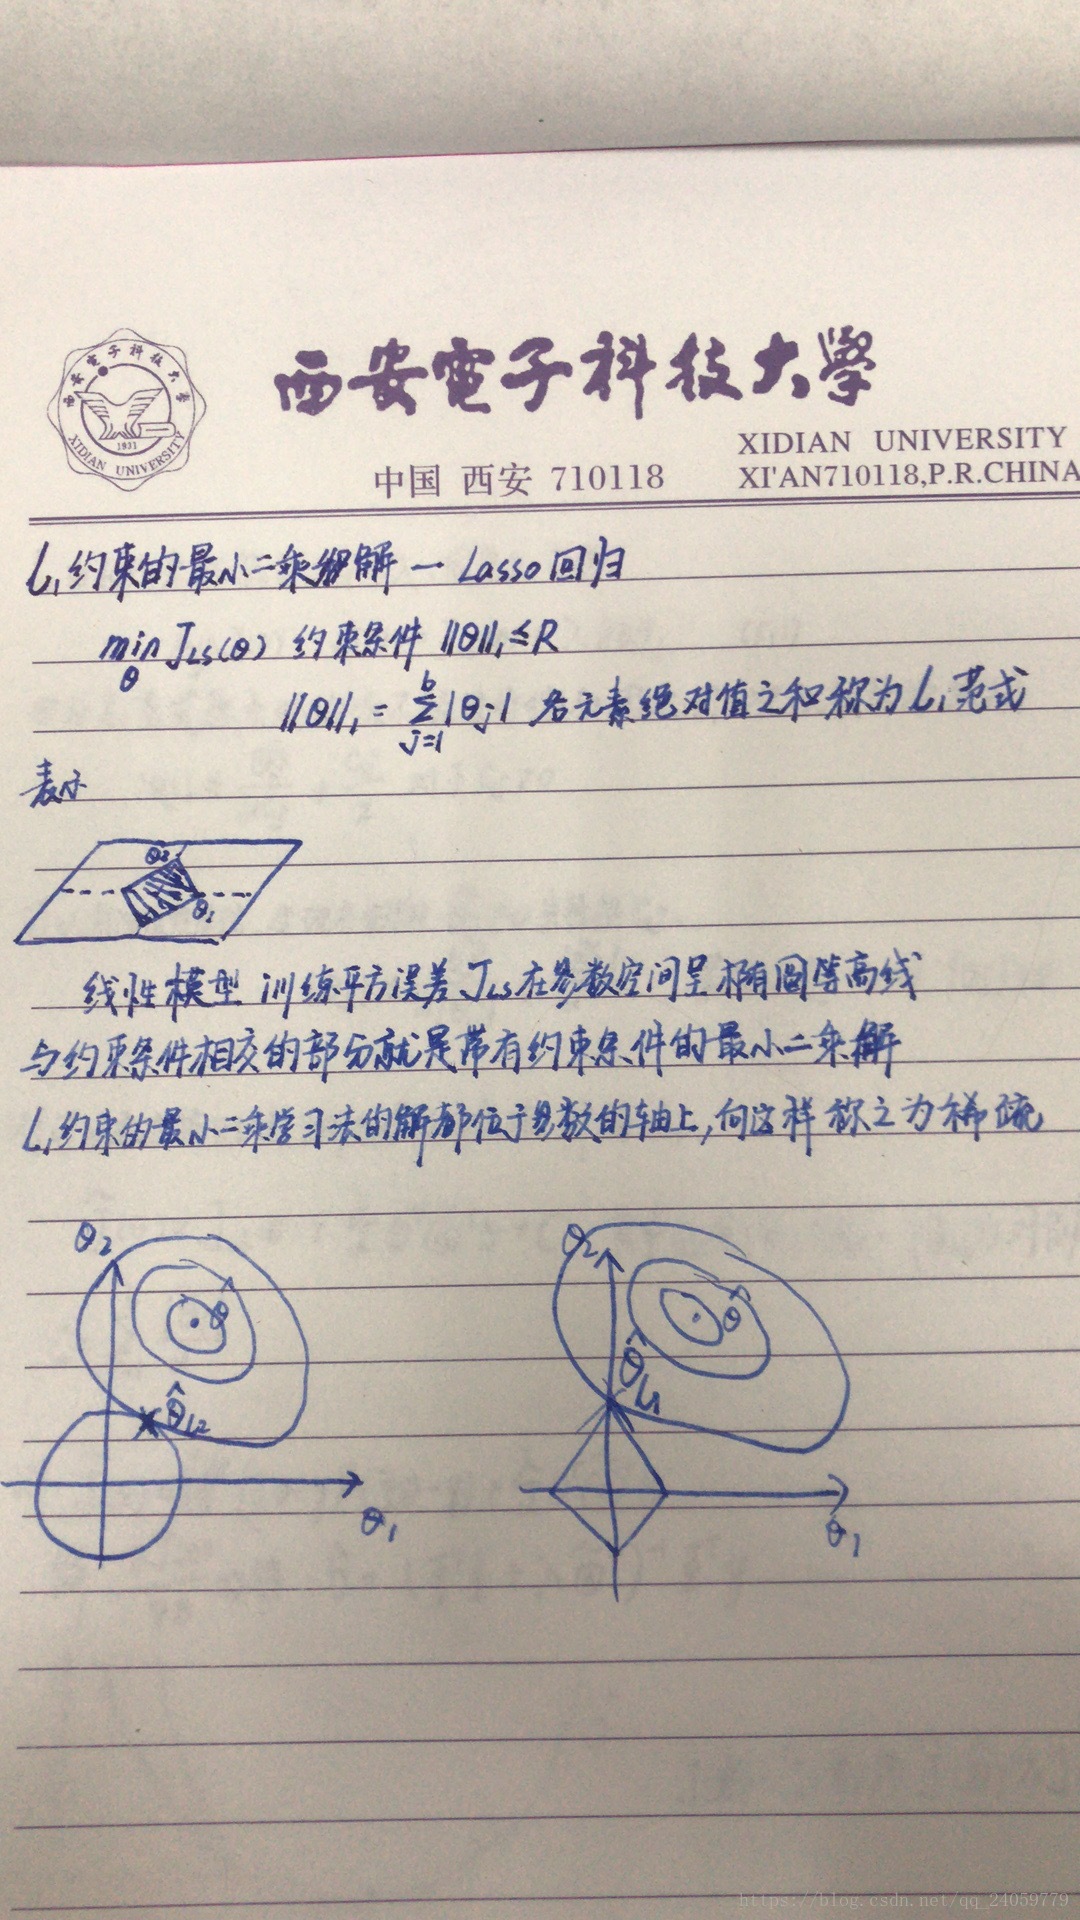 西安電子科技大學
西安電子科技大学
1931
XIDIAN UNIVERSITY
XIDIAN UNIVERSITY
中国 西安 710118
XI'AN710118,P.R.CHINA
L₁约束的最小二乘解 — Lasso回归
min J_LS(θ) 约束条件 ||θ||₁ ≤ R
θ
||θ||₁ = Σ_{j=1}^{b} |θj| 各元素绝对值之和称为L₁范式
表示
θ₂
θ₁
线性模型 训练平方误差J_LS在参数空间呈椭圆等高线
与约束条件相交的部分就是带有约束条件的最小二乘解
L₁约束的最小二乘学习法的解都位于参数的轴上,向这样称之为稀疏
θ₂
θ̂
θ̂_L2
θ₁
θ₂
θ̂
θ̂_L1
θ₁
https://blog.csdn.net/qq_24059779